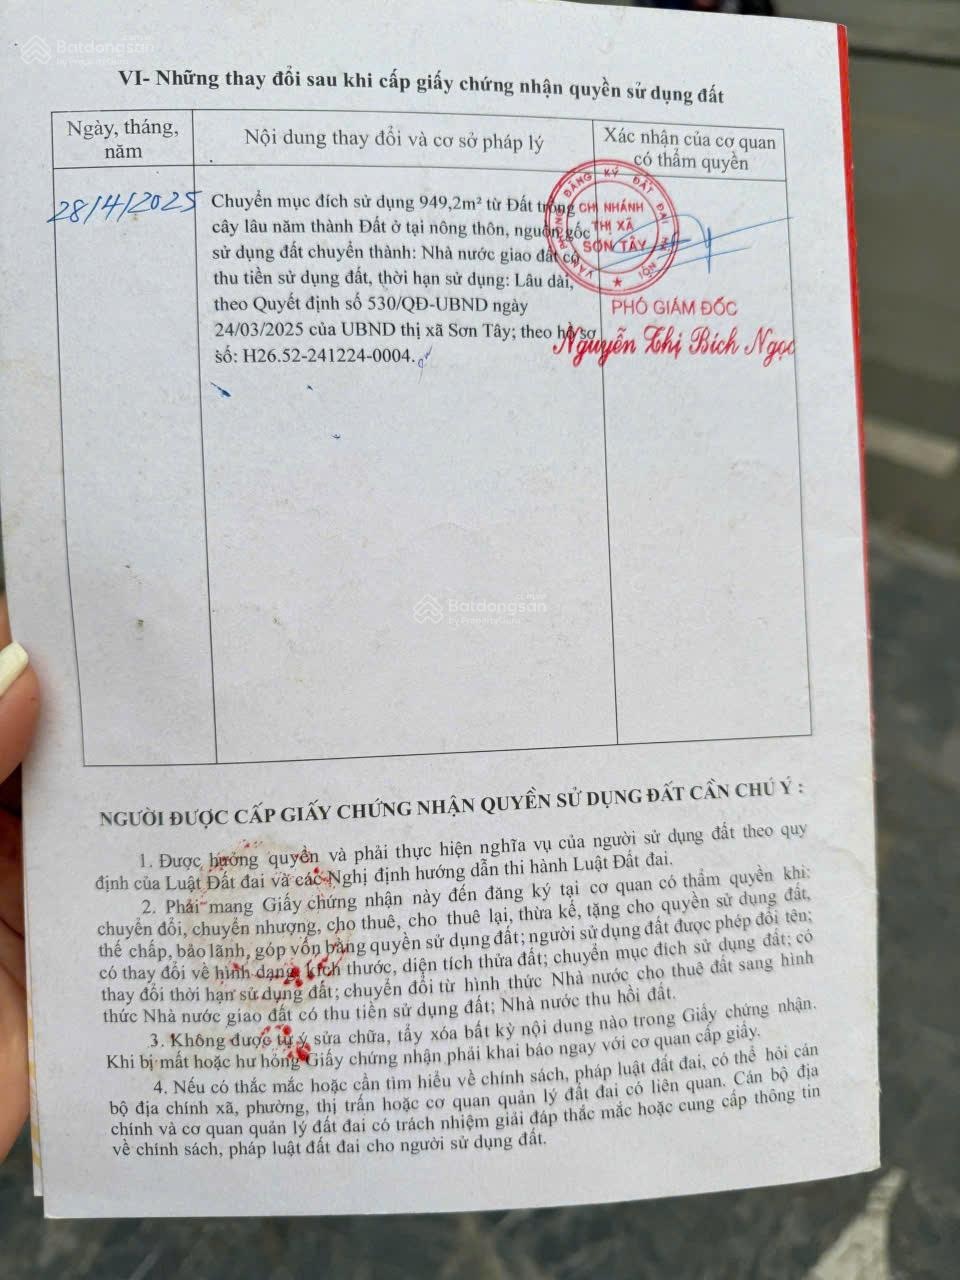 Batdongsan
by PropertyGuru
VI- Những thay đổi sau khi cấp giấy chứng nhận quyền sử dụng đất
Ngày, tháng,
năm
Nội dung thay đổi và cơ sở pháp lý
Xác nhận của cơ quan
có thẩm quyền
28/4/2025
Chuyển mục đích sử dụng 949,2m² từ Đất trồng
cây lâu năm thành Đất ở tại nông thôn, nguồn gốc
sử dụng đất chuyển thành: Nhà nước giao đất có
thu tiền sử dụng đất, thời hạn sử dụng: Lâu dài,
theo Quyết định số 530/QĐ-UBND ngày
24/03/2025 của UBND thị xã Sơn Tây; theo hồ sơ
số: H26.52-241224-0004.
VĂN PHÒNG ĐĂNG KÝ ĐẤT ĐAI HÀ NỘI
CHI NHÁNH
THỊ XÃ
SƠN TÂY
PHÓ GIÁM ĐỐC
Nguyễn Thị Bích Ngọc
Batdongsan
by PropertyGuru
NGƯỜI ĐƯỢC CẤP GIẤY CHỨNG NHẬN QUYỀN SỬ DỤNG ĐẤT CẦN CHÚ Ý :
1. Được hưởng quyền và phải thực hiện nghĩa vụ của người sử dụng đất theo quy
định của Luật Đất đai và các Nghị định hướng dẫn thi hành Luật Đất đai.
2. Phải mang Giấy chứng nhận này đến đăng ký tại cơ quan có thẩm quyền khi:
chuyển đổi, chuyển nhượng, cho thuê, cho thuê lại, thừa kế, tặng cho quyền sử dụng đất,
thế chấp, bảo lãnh, góp vốn bằng quyền sử dụng đất; người sử dụng đất được phép đổi tên;
có thay đổi về hình dạng, kích thước, diện tích thửa đất; chuyển mục đích sử dụng đất; có
thay đổi thời hạn sử dụng đất; chuyển đổi từ hình thức Nhà nước cho thuê đất sang hình
thức Nhà nước giao đất có thu tiền sử dụng đất; Nhà nước thu hồi đất.
3. Không được tự ý sửa chữa, tẩy xóa bất kỳ nội dung nào trong Giấy chứng nhận.
Khi bị mất hoặc hư hỏng Giấy chứng nhận phải khai báo ngay với cơ quan cấp giấy.
4. Nếu có thắc mắc hoặc cần tìm hiểu về chính sách, pháp luật đất đai, có thể hỏi cán
bộ địa chính xã, phường, thị trấn hoặc cơ quan quản lý đất đai có liên quan. Cán bộ địa
chính và cơ quan quản lý đất đai có trách nhiệm giải đáp thắc mắc hoặc cung cấp thông tin
về chính sách, pháp luật đất đai cho người sử dụng đất.